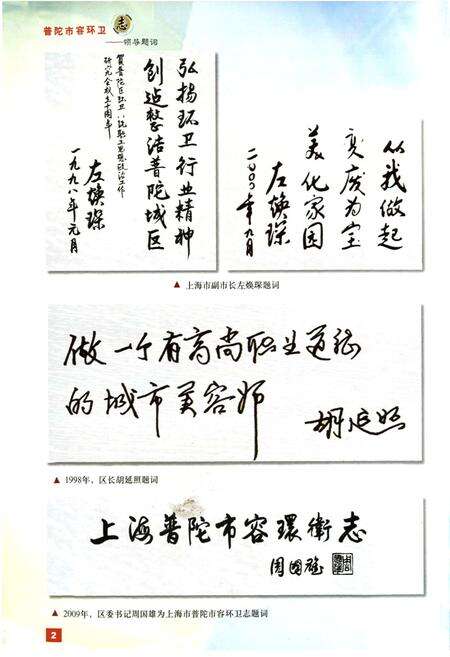 普陀市容环卫志
——领导题词
弘扬环卫行业精神
创造整洁普陀城区
贺普陀区环卫职工思想政治工作
研究会成立十周年
左焕琛
一九九八年元月
从我做起
变废为宝
美化家园
左焕琛
二〇〇〇年九月
▲ 上海市副市长左焕琛题词
做一个有高尚职业道德
的城市美容师
胡延照
▲ 1998年，区长胡延照题词
上海普陀市容環衛志
周国雄
▲ 2009年，区委书记周国雄为上海市普陀市容环卫志题词
2